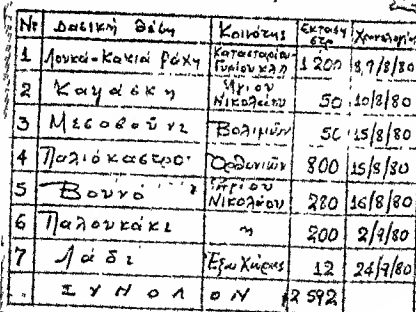 Νο Δασική θέση Κοινότης Έκταση στρ. Χρονολογία
1 Λουκά-Κακιά ράχη Καταστάριου-Γυρίου κλπ 1200 8,9/8/80
2 Αγίου Νικολάου 50 10/8/80
3 Μεσοβούνι Βολιμών 50 15/8/80
4 Παλιόκαστρο Ορθονιών 800 15/8/80
5 Βουνό Αγίου Νικολάου 280 16/8/80
6 Παλουκάκι " 200 2/9/80
7 Λάδι Έξω Χώρας 12 24/9/80
ΣΥΝΟΛΟΝ 2592